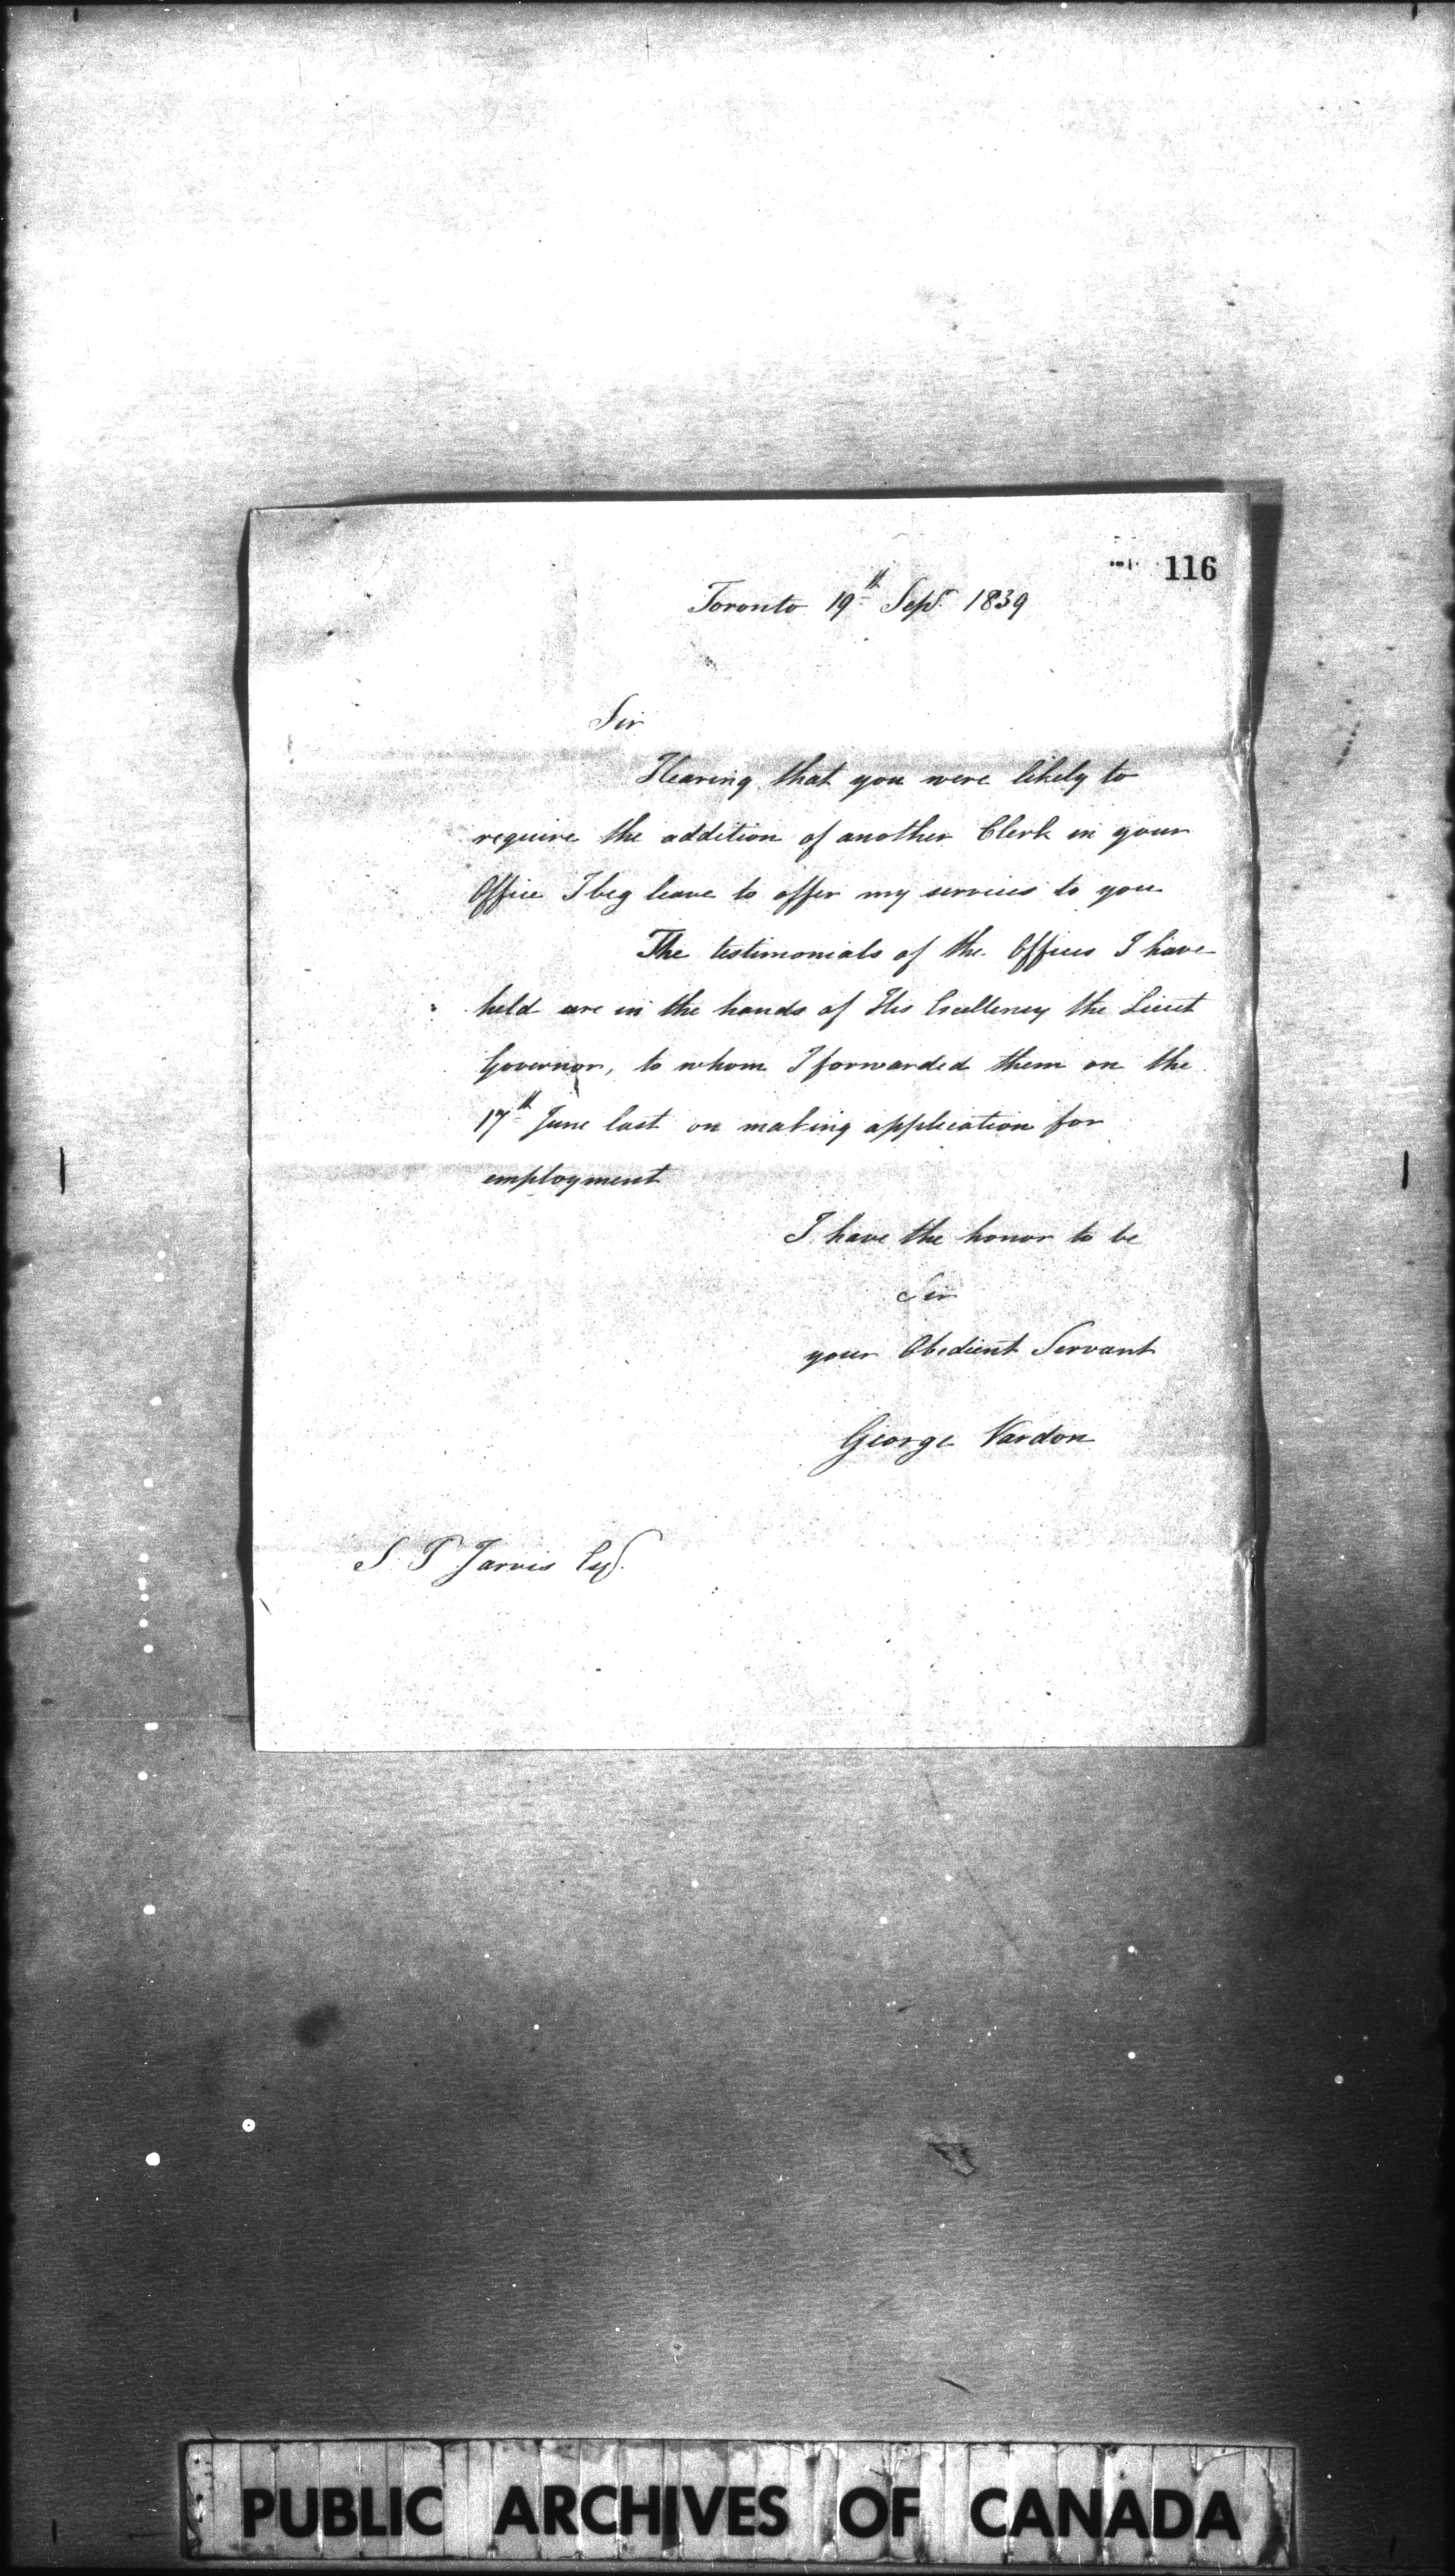 116
Toronto 19th Sept. 1839
Sir
Hearing that you were likely to
require the addition of another Clerk in your
Office I beg leave to offer my services to you
The testimonials of the Offices I have
held are in the hands of His Excellency the Lieut
Governor, to whom I forwarded them on the
17th June last on making application for
employment
I have the honor to be
Sir
your Obedient Servant
George Vardon
S. P Jarvis Esq.
PUBLIC ARCHIVES OF CANADA